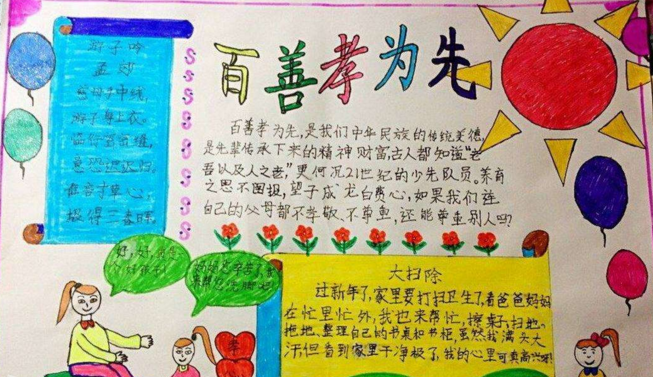 百善孝为先
游子吟
孟郊
慈母手中线，
游子身上衣。
临行密密缝，
意恐迟迟归。
谁言寸草心，
报得三春晖。
百善孝为先，是我们中华民族的传统美德，
是先辈传承下来的精神财富，古人都知道“老
吾老以及人之老，”更何况21世纪的少先队员。养育
之恩不图报，望子成龙白费心，如果我们连
自己的父母都不孝敬、不尊重，还能尊重别人吗？
好，好，
好孩子！
妈妈您辛苦了，我
帮您洗脚吧！
孝
大扫除
过新年了，家里要打扫卫生了，看爸爸妈妈
在忙里忙外，我也来帮忙，擦桌子、扫地。
拖地、整理自己的书桌和书柜，虽然我满头大
汗但看到家里干净极了，我的心里可真高兴呀！